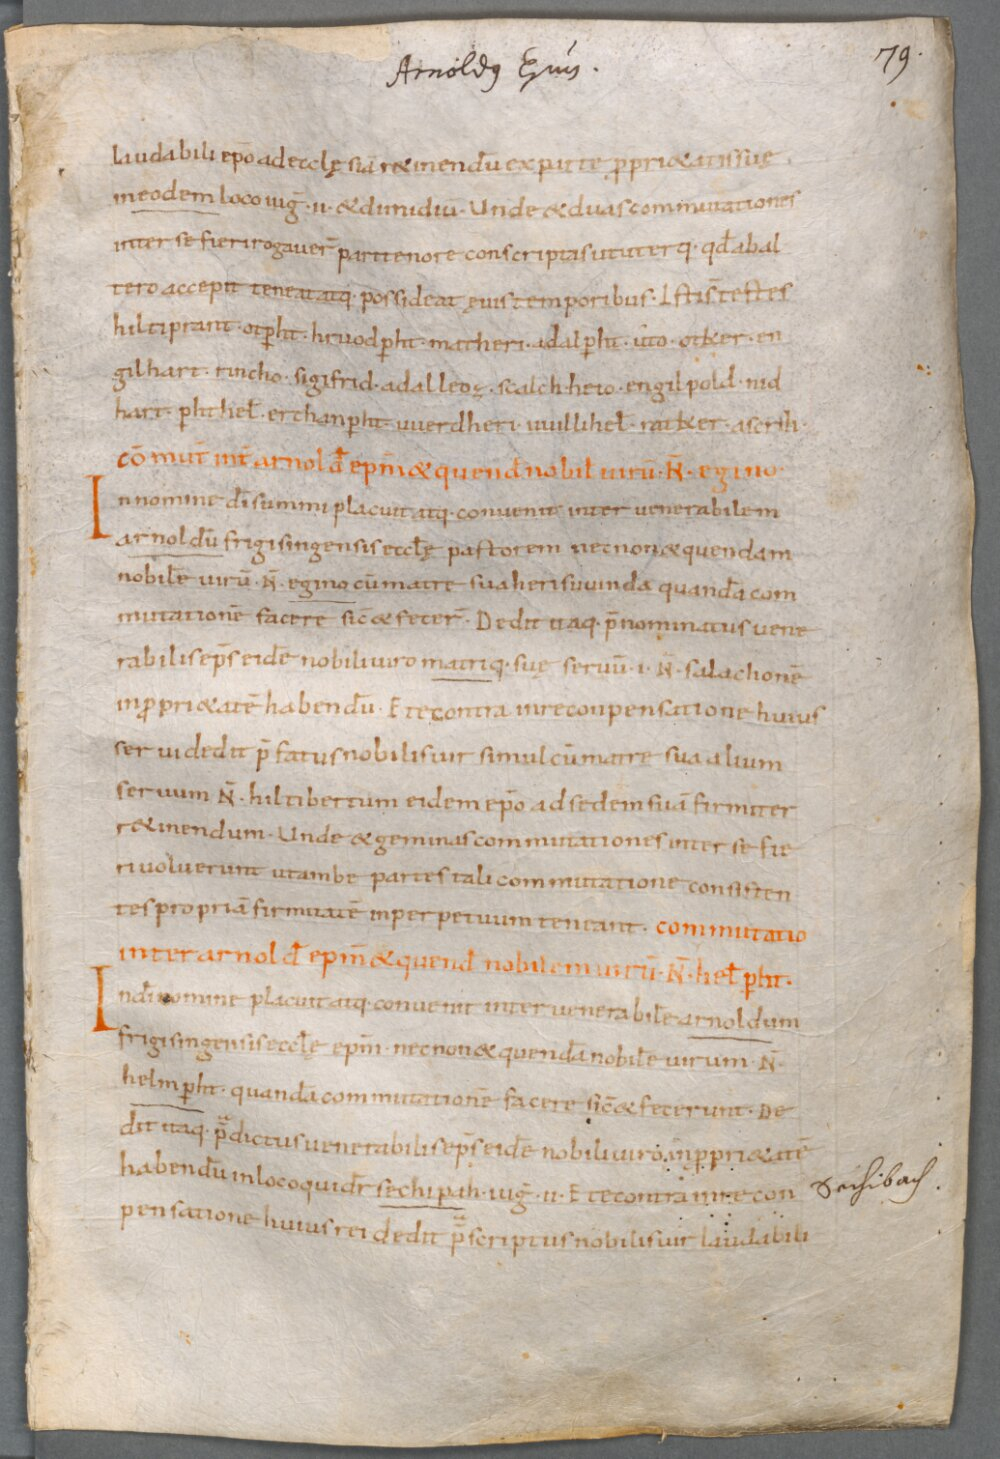 Arnoldꝯ Epūs.
79.
laudabili ep̄o ad ecclęsiā r&inendū ex parte ꝓpri&atis suę
in eodem loco iuḡ· ii· & dimidiū· Unde & duas commutationes
inter se fieri rogaver̄ pari tenore conscriptas ut uterq· qđ ab al
tero accepit teneat atq· possideat ęvis temporibus· Isti s̄ testes
hiltiprant· otꝑht· hruodꝑht· matheri· adalꝑht· uto· otker· en
gilhart· tincho· sigifrid· adalleoz· scalch· heio· engilpold· nid
hart· ꝑhthel̄· erchanꝑht· uuerdheri· uuillihel̄· ratker· ascrih·
cōmut̄ int̄ arnolđ ep̄m & quenđ nobil̄ virū· N̄· egino·
In nomine dī summi placuit atq· convenit inter venerabilem
arnoldū frigisingensis eccl̄ę pastorem necnon & quendam
nobil̄e virū· N̄· egino cū matre sua herisuuinda quandā com
mutationē facere sic̄ & fecer̄· Dedit itaq· p̄nominatus vene
rabilis ep̄s eidē nobili viro matriq· suę servū· i· N̄· salachonē
in ꝓpri&atē habendū· Et econtra in reconpensatione huius
servi dedit p̄fatus nobilis vir simul cū matre sua alium
servum N̄· hiltibertum eidem ep̄o ad sedem suā firmiter
r&inendum· Unde & geminas commutationes inter se fie
ri voluerunt ut ambe partes tali commutatione consisten
tes propriā firmitatē in perpetuum teneant· commutatio
inter arnolđ ep̄m & quenđ nobilem virū· N̄· hel̄ꝑht·
In dī nomine placuit atq· convenit inter venerabil̄e arnoldum
frigisingensis eccl̄ę ep̄m· necnon & quendā nobil̄e virum· N̄·
helmꝑht· quandā commutationē facere sic̄ & fecerunt· De
dit itaq· p̄dictus venerabilis ep̄s eidē nobili viro in ꝓpri&atē
habendū in loco qui dr̄ sechipah· iuḡ· ii· Et econtra in recon
Sechibach.
pensatione huius rei dedit p̄scriptus nobilis vir laudabili